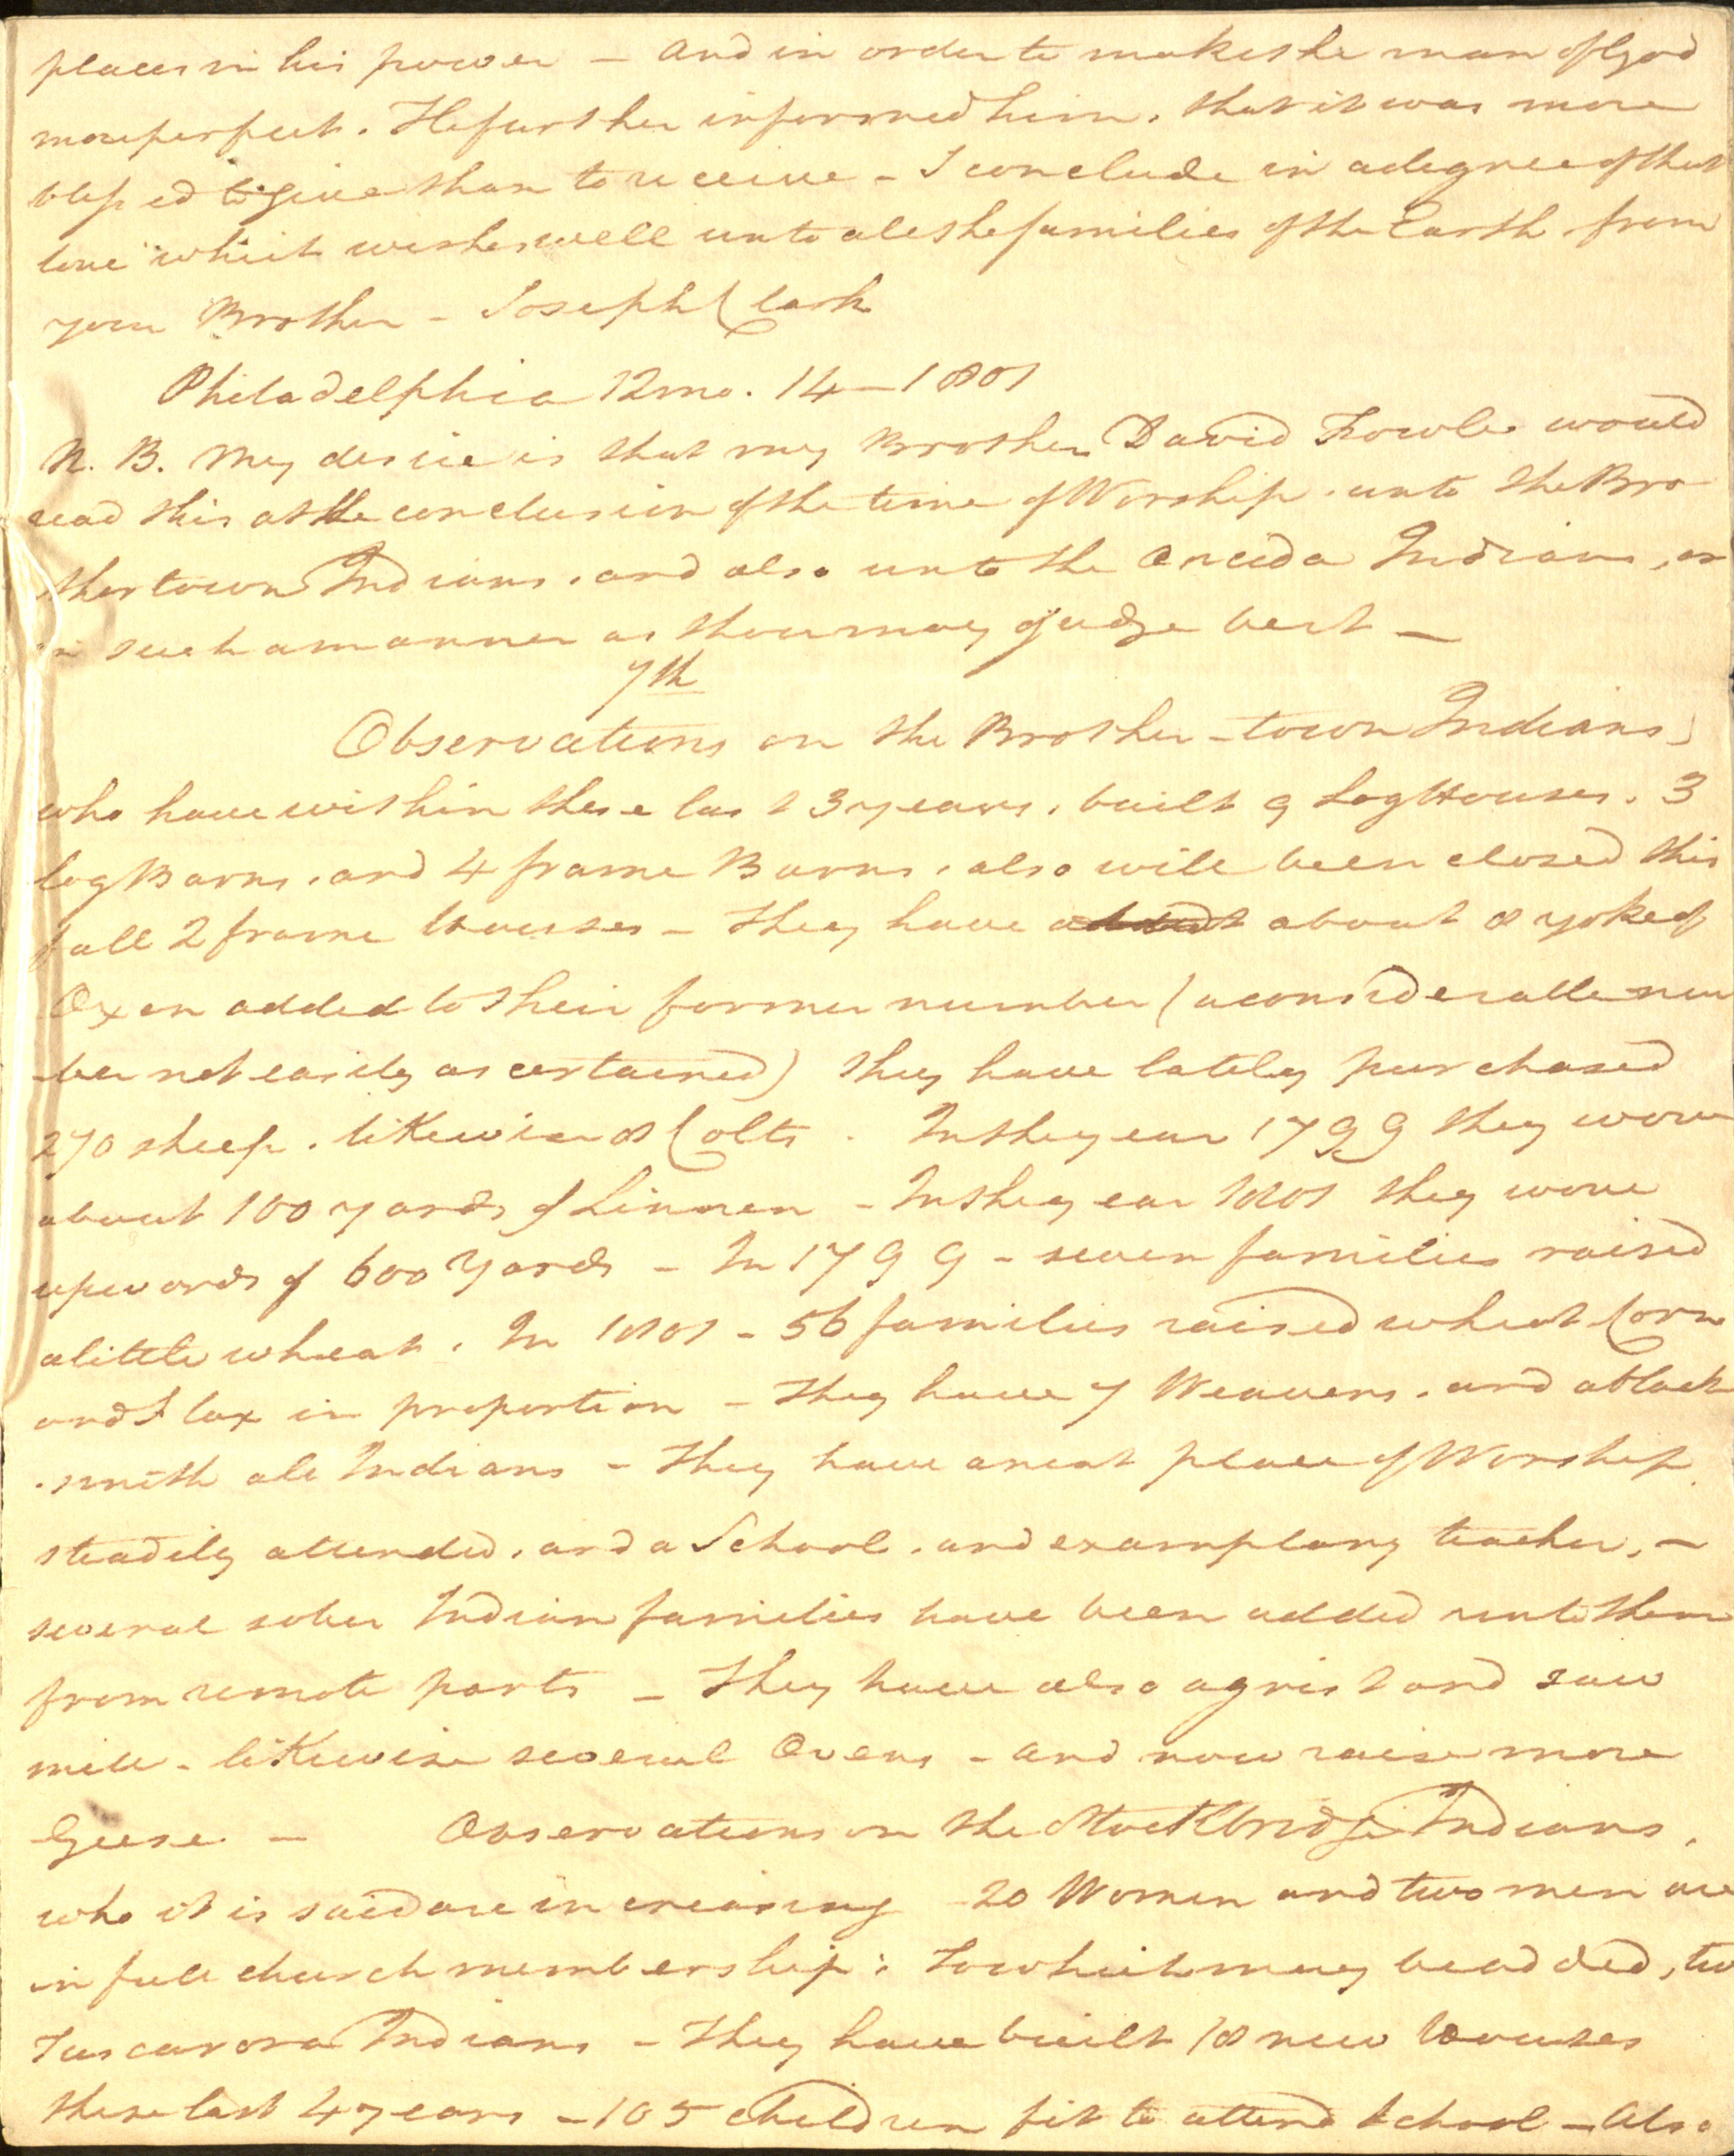 places in his power – and in order to make the man of God
more perfect. He further informed him, that it was more
blessed to give than to receive – I conclude in a degree of that
love which wishes well unto all the families of the Earth from
your Brother – Joseph Clark
Philadelphia 12mo. 14 – 1801
N. B. My desire is that my Brother David Fowler would
read this at the conclusion of the time of Worship, unto the Bro
thertown Indians, and also unto the Oneida Indians, or
in such a manner as thou may judge best –
7th
Observations on the Brother-town Indians,
who have within these last 3 years, built 9 Log Houses. 3
log Barns, and 4 frame Barns, also will been closed this
fall 2 frame houses – They have about 8 yoke of
Oxen added to their former number (a considerable num
-ber not easily ascertained) they have lately purchased
270 sheep, likewise 8 Colts. In the year 1799 they wove
about 100 yards of Linnen – In the year 1801 they wove
upwards of 600 Yards – In 1799 – seven families raised
a little wheat. In 1801 – 56 families raised wheat Corn
and Flax in proportion – They have 7 Weavers, and a black
-smith all Indians – They have a neat place of Worship
steadily attended, and a School, and examplary teacher, –
several sober Indian families have been added unto them
from remote parts – They have also a grist and saw
mill – likewise several Ovens – and now raise more
Geese – Observations on the Stockbridge Indians,
who it is said are increasing 20 Women and two men are
in full church membership; to which may be added, two
Tuscarora Indians – They have built 18 new houses
these last 4 years – 105 children fit to attend school – Also